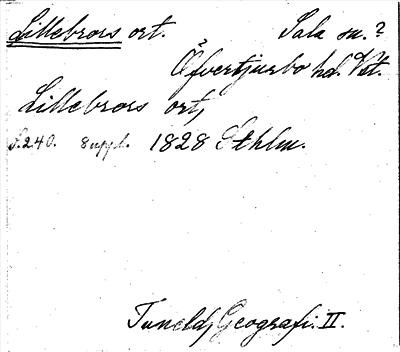 Lillebrors ort. Sala sn.?
Öfvertjurbo hd. Vst.
Lillebrors ort,
S.240. 8 uppl. 1828 Sthlm.
Tuneld, Geografi. II.